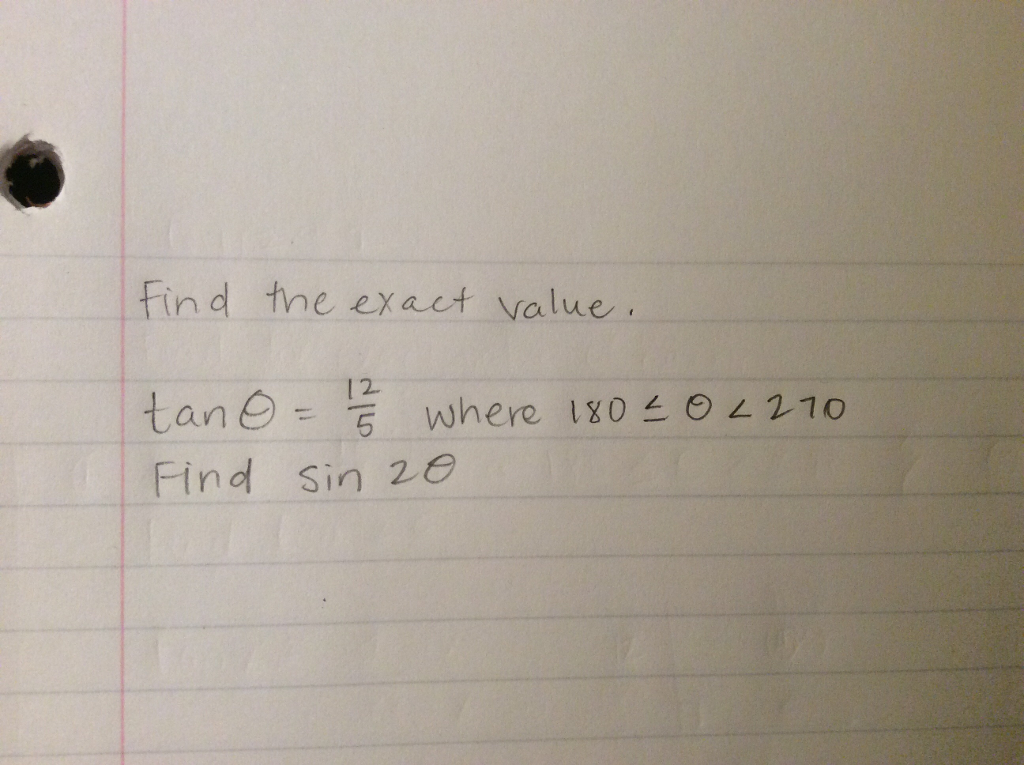 Find the exact value.
tan θ = 12/5 where 180 ≤ θ < 270
Find sin 2θ